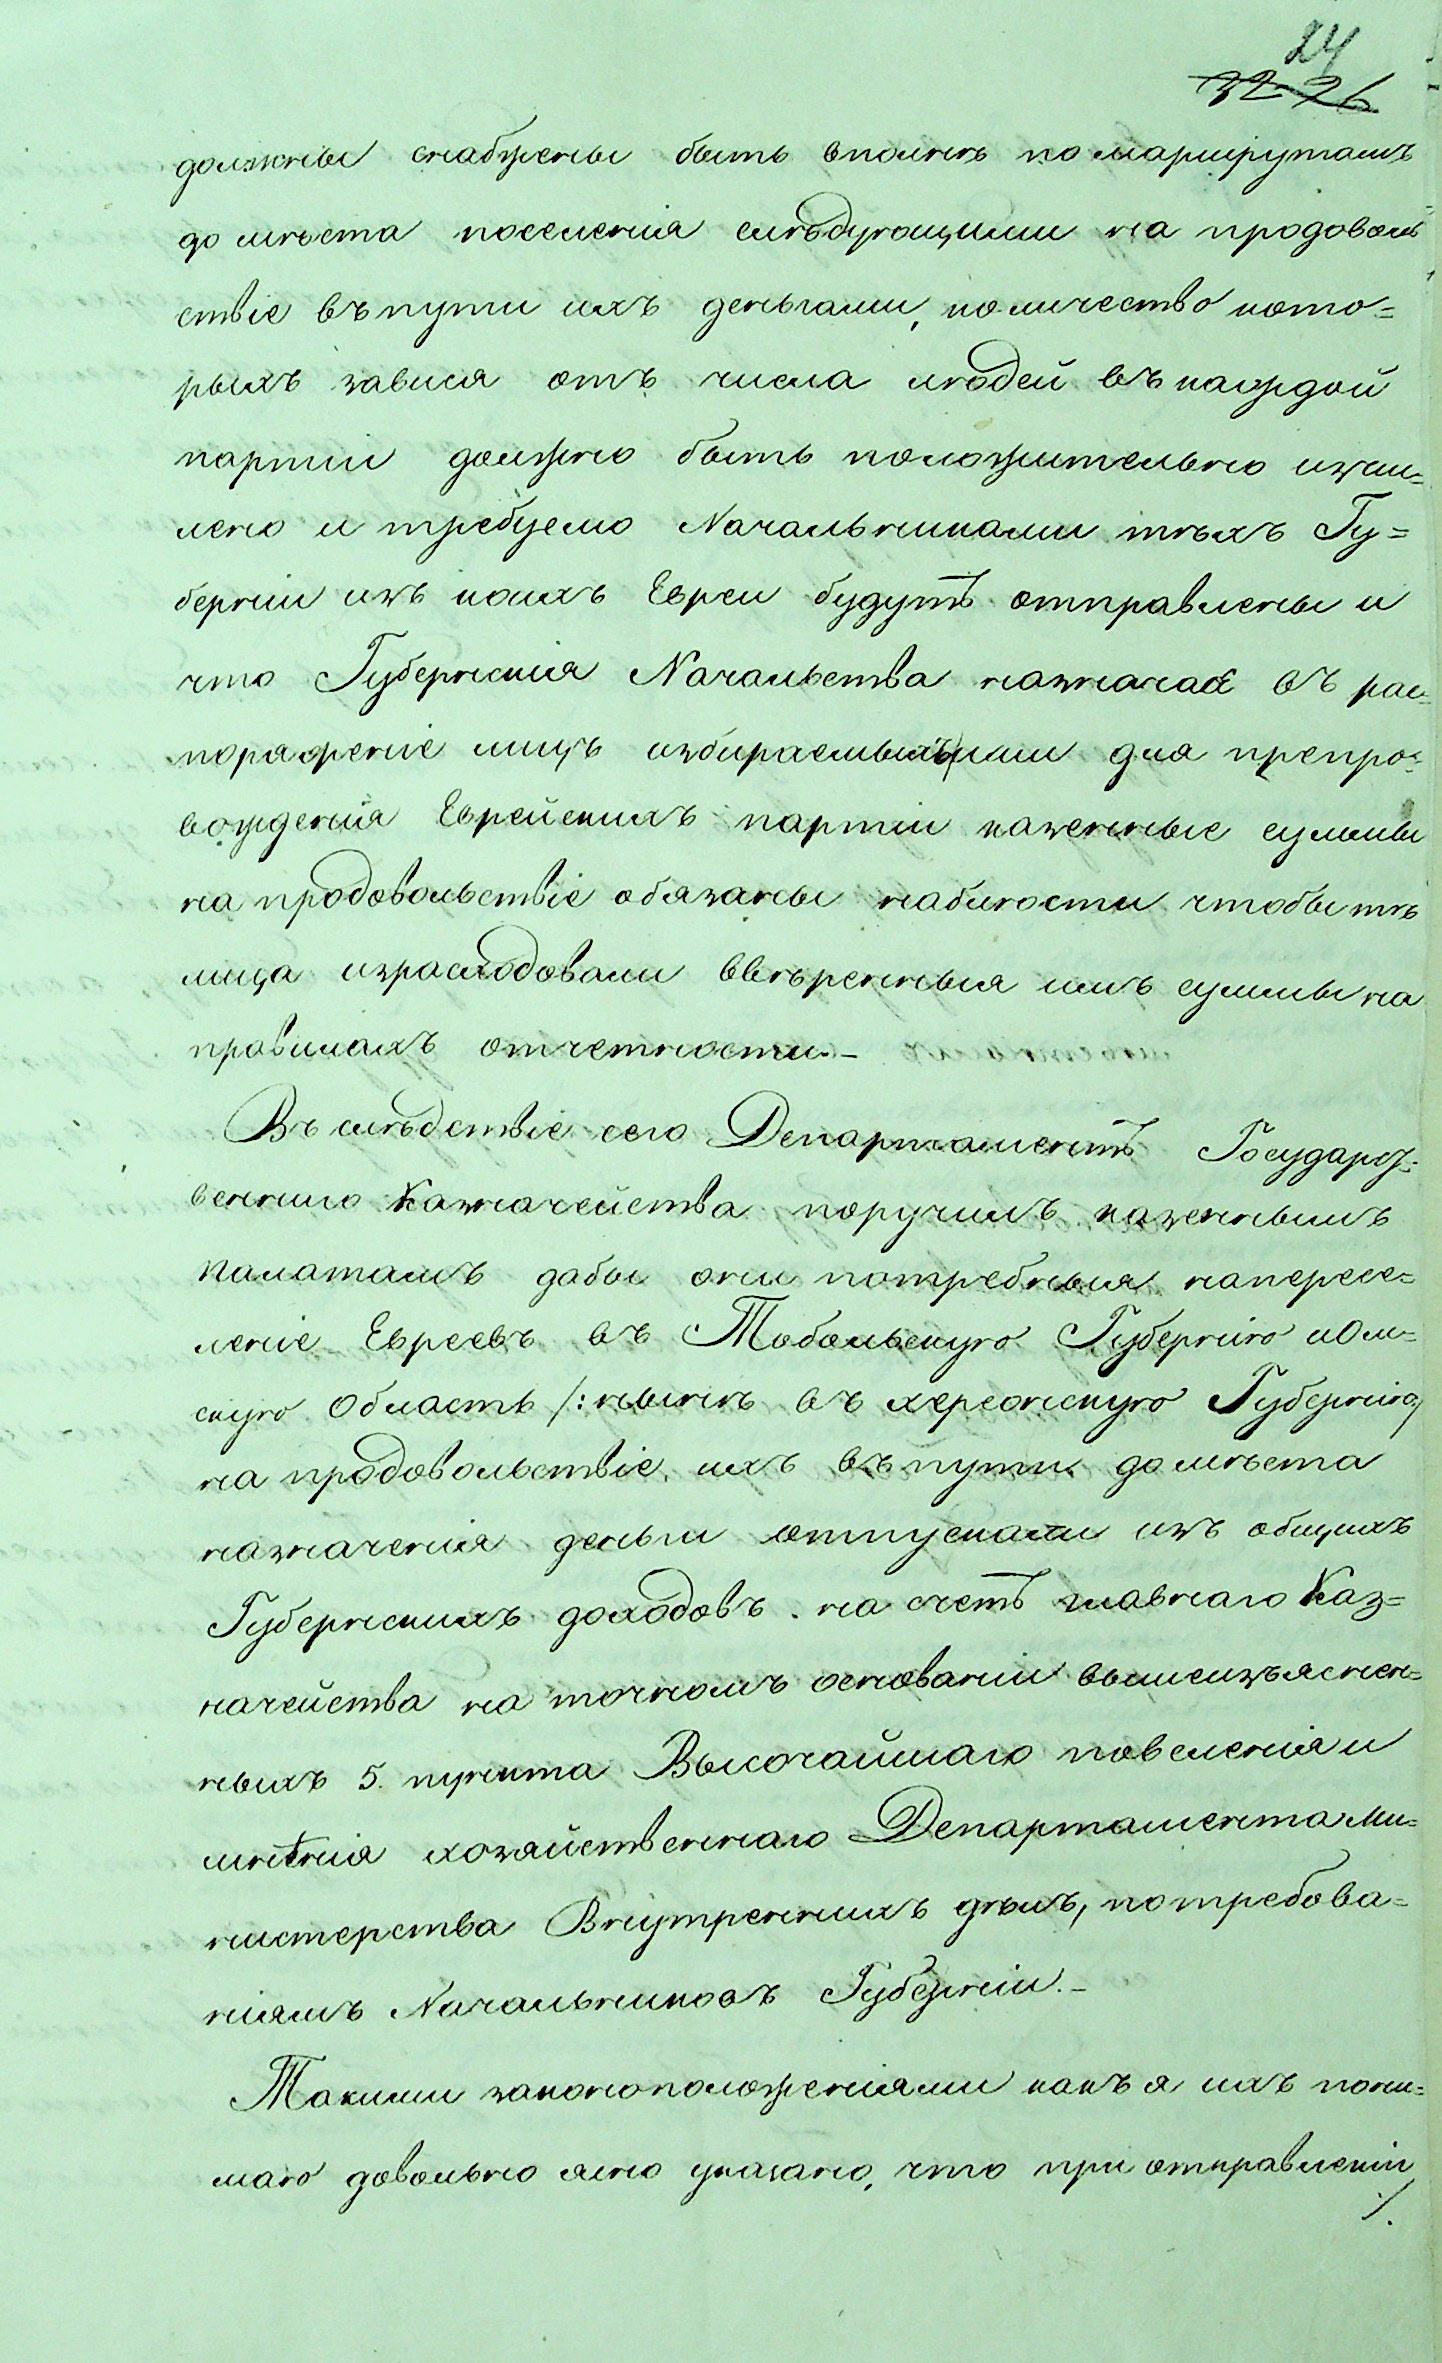 24
32 26
должны снабжены быть вполнѣ по маршрутамъ
до мѣста поселенія слѣдующими на продоволь
ствіе въ пути ихъ деньгами, количество кото=
рыхъ завися отъ числа людей въ каждой
партіи должно быть положительно исчи=
лено и требуемо Начальниками тѣхъ Гу=
берніи изъ коихъ Евреи будутъ отправлены и
что Губернскія Начальства назначая въ рас=
поряженіе лицъ избираемыхъ ими для препро=
вожденія Еврейскихъ партіи казенные суммы
на продовольствіе обязаны наблюсти чтобы тѣ
лица израсходовали ввѣренныя имъ суммы на
правилахъ отчетности.–
Въ слѣдствіе сего Департаментъ Государст=
веннаго Казначейства поручилъ казеннымъ
Палатамъ дабы они потребныя на пересе=
леніе Евреевъ въ Тобольскую Губернію и Ом=
скую Область /: нынѣ въ херсонскую Губернію/
на продовольствіе ихъ въ пути до мѣста
назначенія деньги отпускали изъ общихъ
Губернскихъ доходовъ на счетъ главнаго Каз=
начейства на точномъ основаніи вышеизъяснен=
ныхъ 5. пункта Высочайшаго повеленія и
мнѣнія хозяйственнаго Департамента Ми=
нистерства Внутреннихъ дѣлъ, по требова=
ніямъ Начальниковъ Губерніи.–
Такими законоположеніями какъ я ихъ пони=
маю довольно ясно указано, что при отправленіи
/.